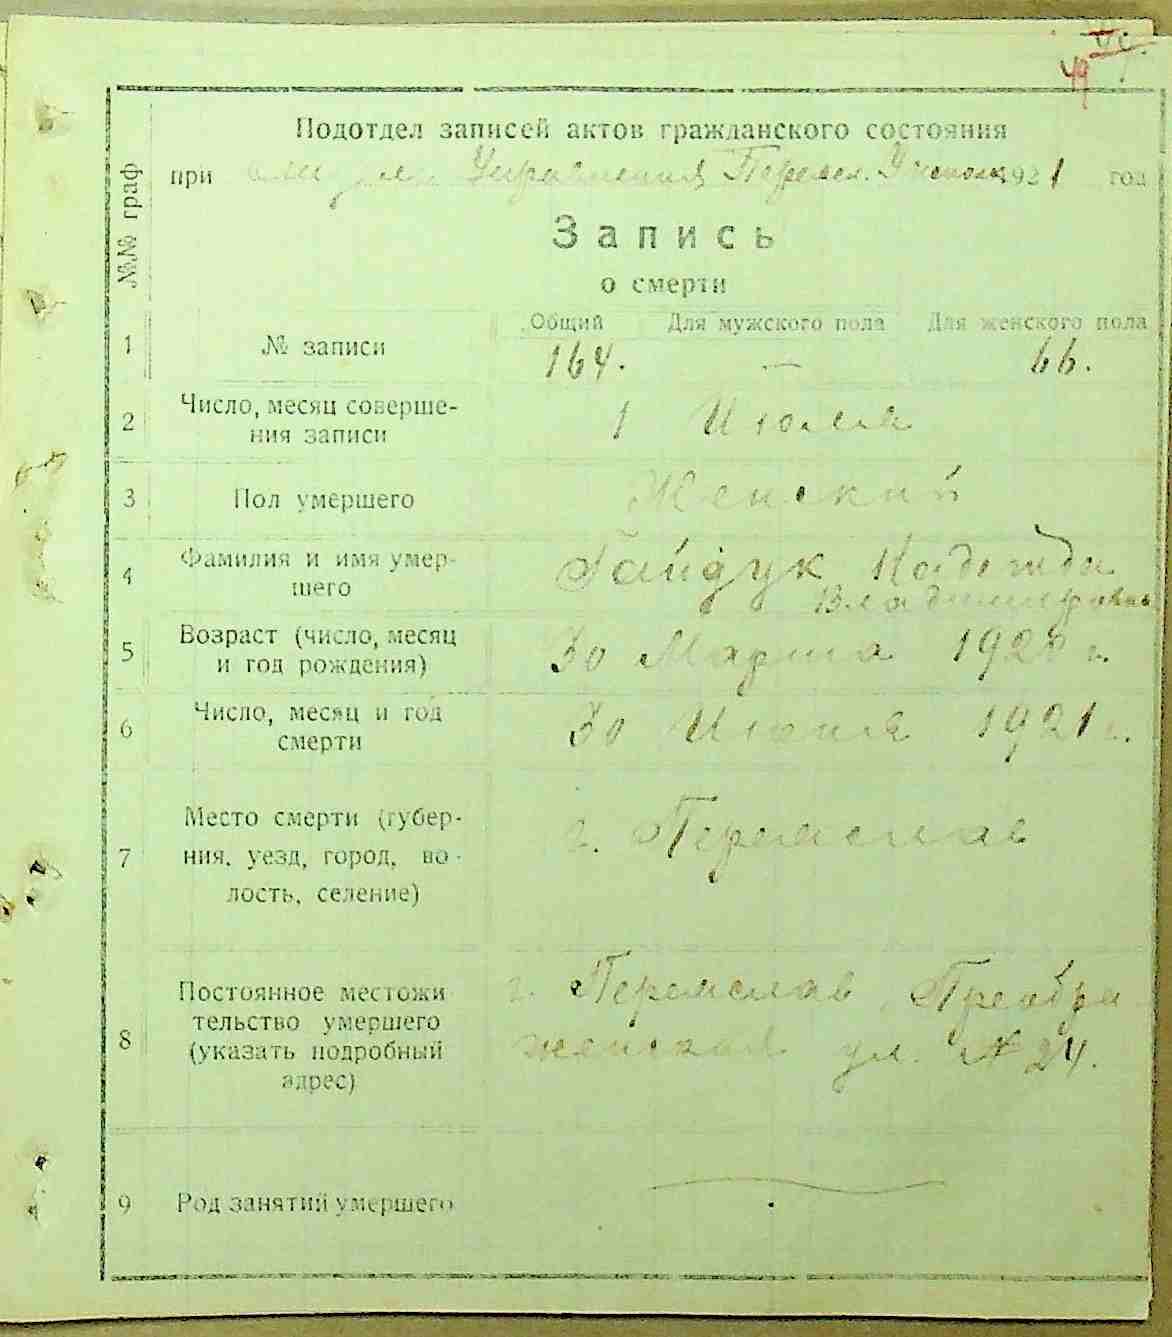 49
Подотдел записей актов гражданского состояния
при Управления Перемсл. 1921 год
Запись
о смерти
№№ граф
Общий Для мужского пола Для женского пола
1 № записи 164. — 66.
2 Число, месяц соверше-
ния записи 1 Июля
3 Пол умершего Женский
4 Фамилия и имя умер-
шего Гайдук Надежда
Владимировна
5 Возраст (число, месяц
и год рождения) 30 Марта 1920 г.
6 Число, месяц и год
смерти 30 Июня 1921 г.
7 Место смерти (губер-
ния, уезд, город, во-
лость, селение) г. Перемслав
8 Постоянное местожи
тельство умершего
(указать подробный
адрес) г. Перемслав, Преобра
женская ул. № 24.
9 Род занятий умершего